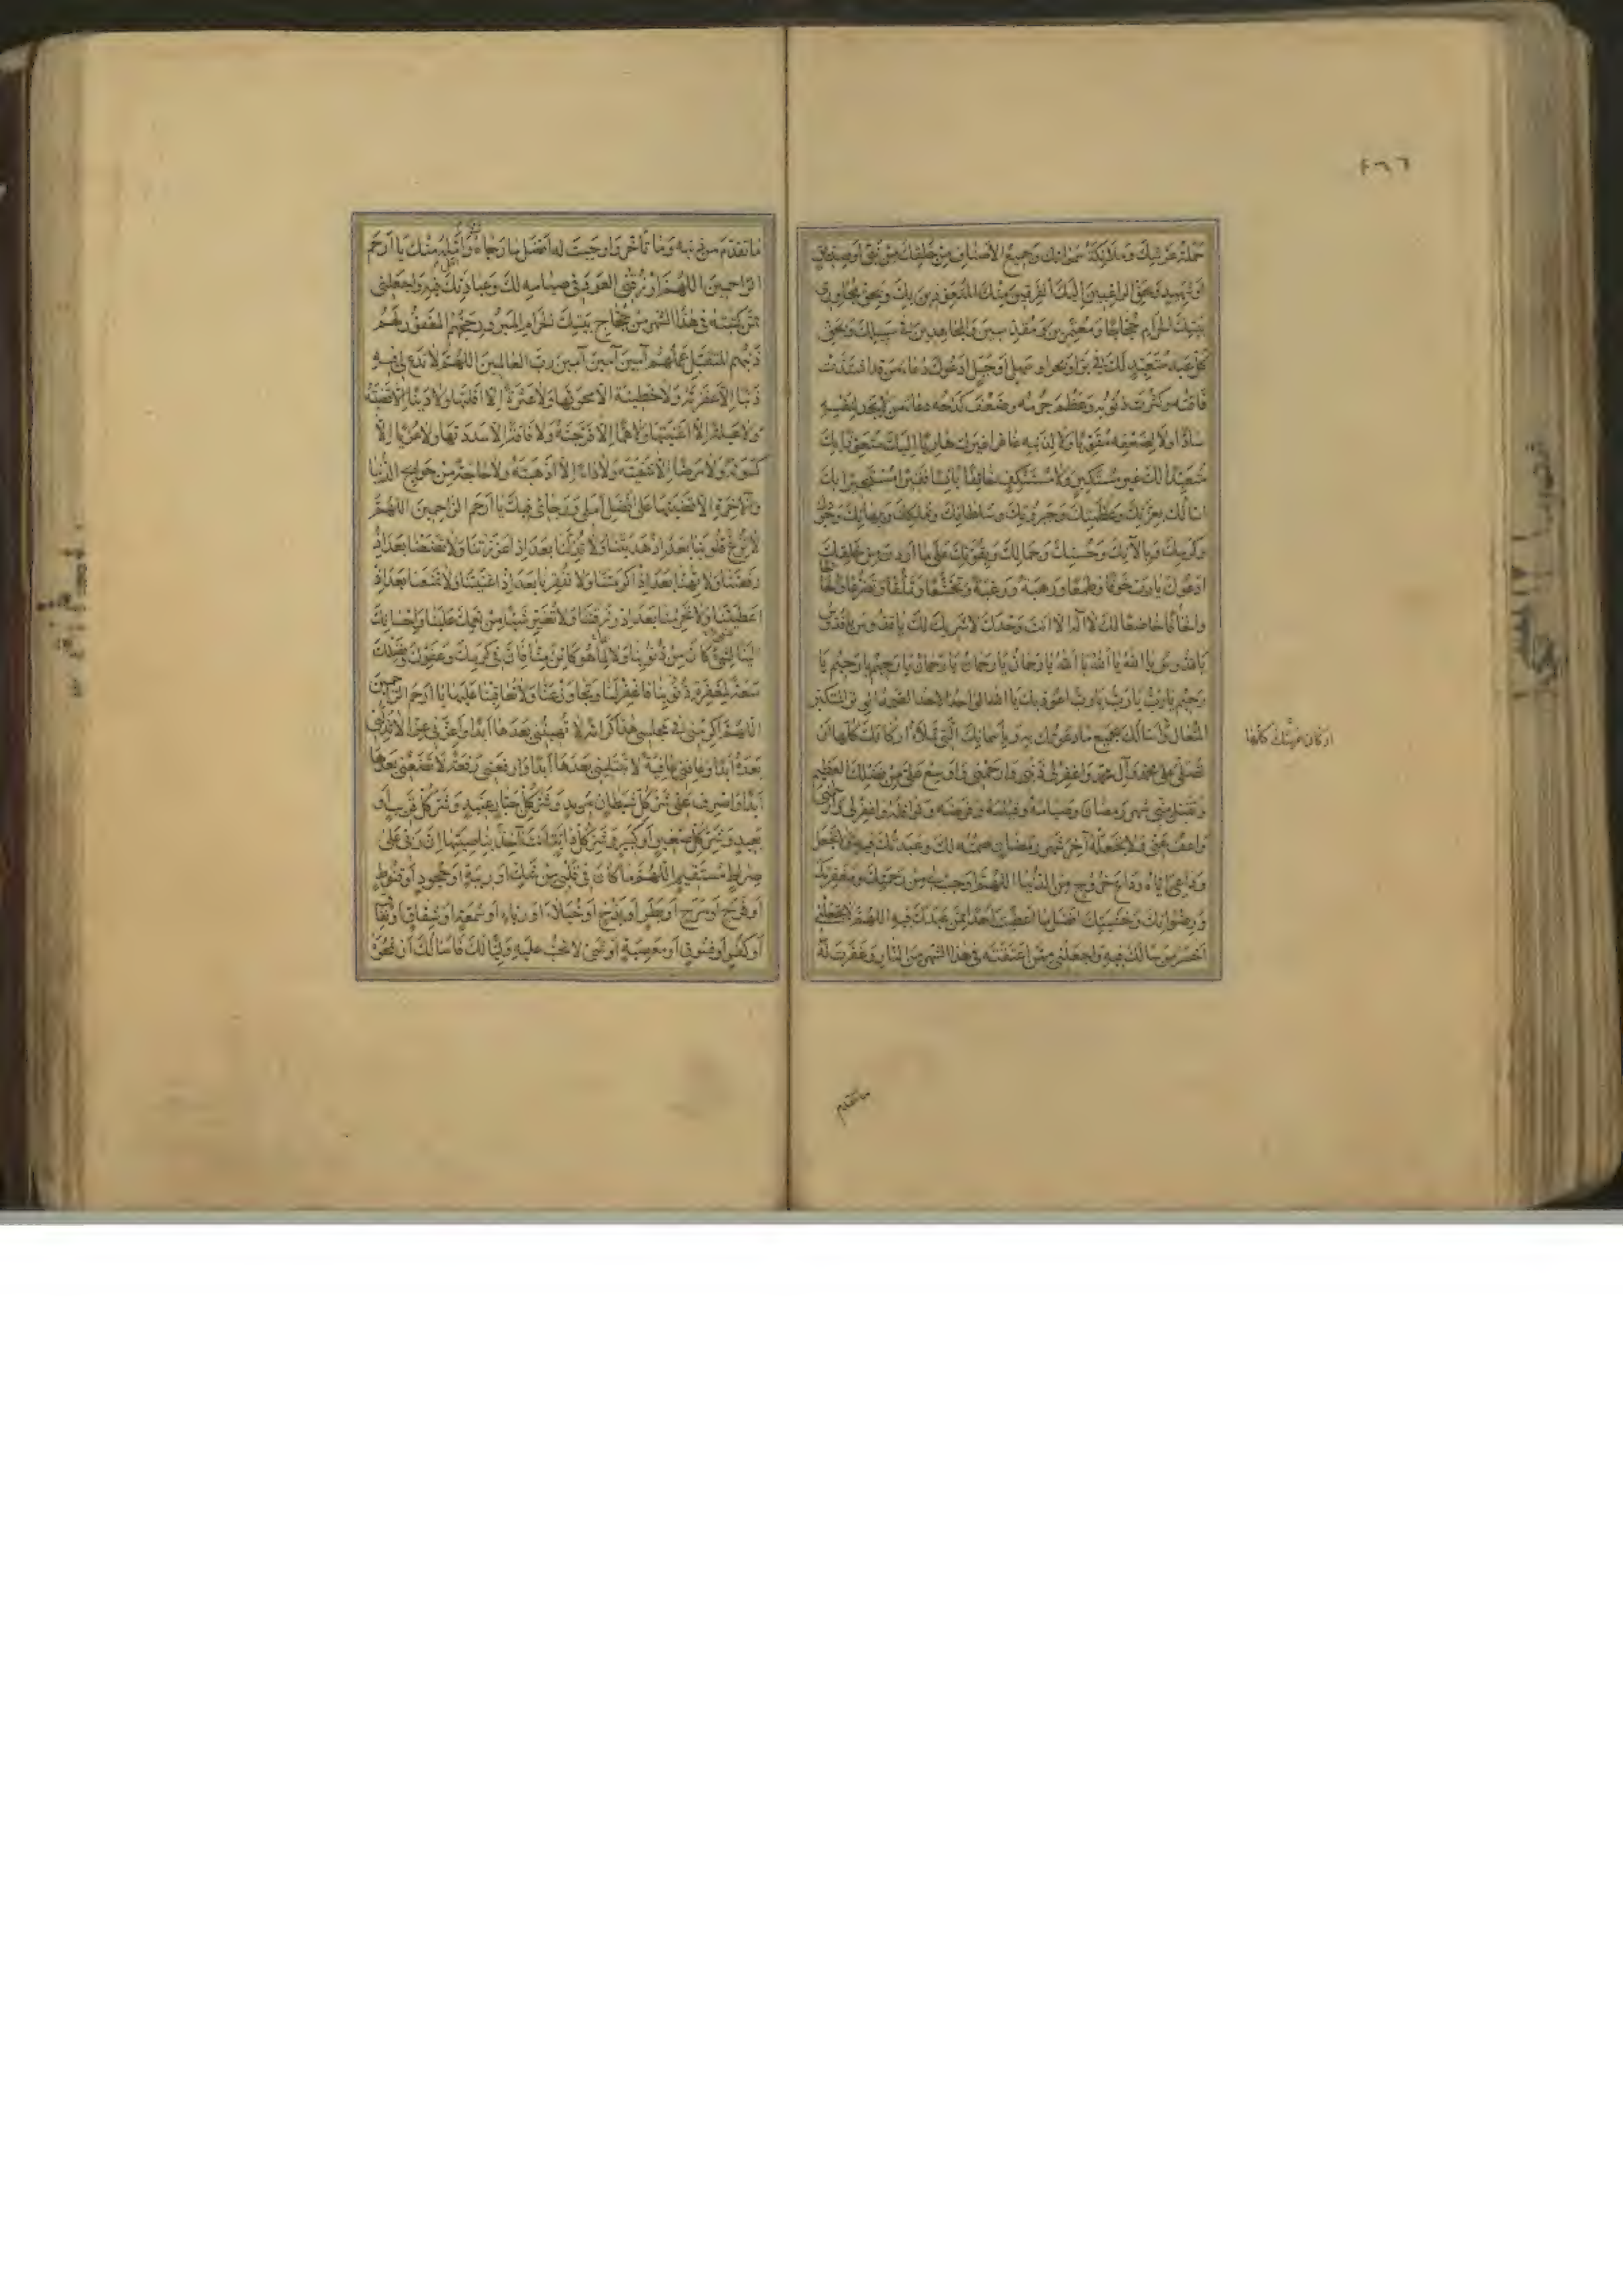 ٤٦٦
حملة عرشك وملائكة سمواتك وجميع الأصناف من خلقك من نبي أو صديق
أو شهيد وبحق الراغبين إليك الفرقين منك المتعوذين بك وبحق مجاوري
بيتك الحرام حجاجا ومعتمرين ومقدسين والمجاهدين في سبيلك وبحق
كل عبد متعبد لك في بر أو بحر أو سهل أو جبل أدعوك دعاء من قد اشتدت
فاقته وكثرت ذنوبه وعظم جرمه وضعف كدحه دعاء من لا يجد لنفسه
سادا ولا لضعفه مقويا ولا لذنبه غافرا غيرك هاربا إليك متعوذا بك
متعبدا لك غير مستكبر ولا مستنكف خائفا بائسا فقيرا مستجيرا بك
أسألك بعزتك وعظمتك وجبروتك وسلطانك وبملكك وببهائك وجودك
وكرمك وبآلائك وحسنك وجمالك وبقوتك على ما أردت من خلقك
أدعوك يا رب خوفا وطمعا ورهبة ورغبة وتخشعا وتملقا وتضرعا وإلحافا
وإلحاحا خاضعا لك لا إله إلا أنت وحدك لا شريك لك يا قدوس يا قدوس
يا قدوس يا الله يا الله يا الله يا رحمان يا رحمان يا رحمان يا رحيم يا رحيم يا
رحيم يا رب يا رب يا رب أعوذ بك يا الله الواحد الأحد الصمد الوتر المتكبر
المتعال وأسألك بجميع ما دعوتك به وبأسمائك التي تملأ أركانك كلها أن
تصلي على محمد وآل محمد واغفر لي ذنبي وارحمني وأوسع علي من فضلك العظيم
وتقبل مني شهر رمضان وصيامه وقيامه وفرضه ونوافله واغفر لي وارحمني
واعف عني ولا تجعله آخر شهر رمضان صمته لك وعبدتك فيه ولا تجعل
وداعي إياه وداع خروجي من الدنيا اللهم أوجب لي من رحمتك ومغفرتك
ورضوانك وخشيتك أفضل ما أعطيت أحدا ممن عبدك فيه اللهم لا تجعلني
أخسر من سألك فيه واجعلني ممن أعتقته في هذا الشهر من النار وغفرت له
أركان عرشك كلها
ما تقدم
ما تقدم من ذنبه وما تأخر وأوجبت له أفضل ما رجاك وأمله منك يا أرحم
الراحمين اللهم ارزقني العود في صيامه لك وعبادتك فيه واجعلني
ممن كتبته في هذا الشهر من حجاج بيتك الحرام المبرور حجهم المغفور لهم
ذنبهم المتقبل عملهم آمين آمين آمين رب العالمين اللهم لا تدع لي فيه
ذنبا إلا غفرته ولا خطيئة إلا محوتها ولا عثرة إلا أقلتها ولا دينا إلا قضيته
ولا عيلة إلا أغنيتها ولا هما إلا فرجته ولا فاقة إلا سددتها ولا عريا إلا
كسوته ولا مرضا إلا شفيته ولا داء إلا أذهبته ولا حاجة من حوائج الدنيا
والآخرة إلا قضيتها على أفضل أملي ورجائي فيك يا أرحم الراحمين اللهم
لا تزغ قلوبنا بعد إذ هديتنا ولا تذلنا بعد إذ أعززتنا ولا تضعنا بعد إذ
رفعتنا ولا تهنا بعد إذ أكرمتنا ولا تفقرنا بعد إذ أغنيتنا ولا تمنعنا بعد إذ
أعطيتنا ولا تحرمنا بعد إذ رزقتنا ولا تغير شيئا من نعمك علينا وإحسانك
لنا لشيء كان من ذنوبنا ولا لما هو كائن منا فإن في كرمك وعفوك وفضلك
سعة لمغفرة ذنوبنا فاغفر لنا وتجاوز عنا ولا تعاقبنا عليها يا أرحم الراحمين
اللهم أكرمني في مجلسي هذا كرامة لا تهينني بعدها أبدا وأعزني عزا لا تذلني
بعده أبدا وعافني عافية لا تبتليني بعدها أبدا وارفعني رفعة لا تضعني بعدها
أبدا واصرف عني شر كل شيطان مريد وشر كل جبار عنيد وشر كل قريب أو
بعيد وشر كل صغير أو كبير وشر كل دابة أنت آخذ بناصيتها إن ربي على
صراط مستقيم اللهم ما كان في قلبي من شك أو ريبة أو جحود أو قنوط
أو فرح أو مرح أو بطر أو بذخ أو خيلاء أو رياء أو سمعة أو شقاق أو نفاق
أو كفر أو فسوق أو معصية أو شيء لا تحب عليه وليا لك فأسألك أن تمحوه